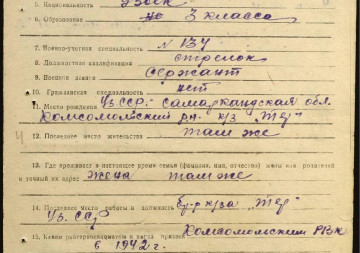 5. Национальность узбек
6. Образование 3 класса
7. Военно-учетная специальность № 134
8. Должностная квалификация стрелок
9. Военное звание сержант
10. Гражданская специальность нет
11. Место рождения Уз.ССР. Самаркандская обл.
Комсомольский р-н к/з
12. Последнее место жительства там же
13. Где проживает в настоящее время семья (фамилия, имя, отчество) жены или родителей
и точный их адрес жена там же
14. Последнее место работы и должность к/за
Уз. ССР
15. Каким райвоенкоматом и когда призван Комсомольским РВК
в 1942 г.